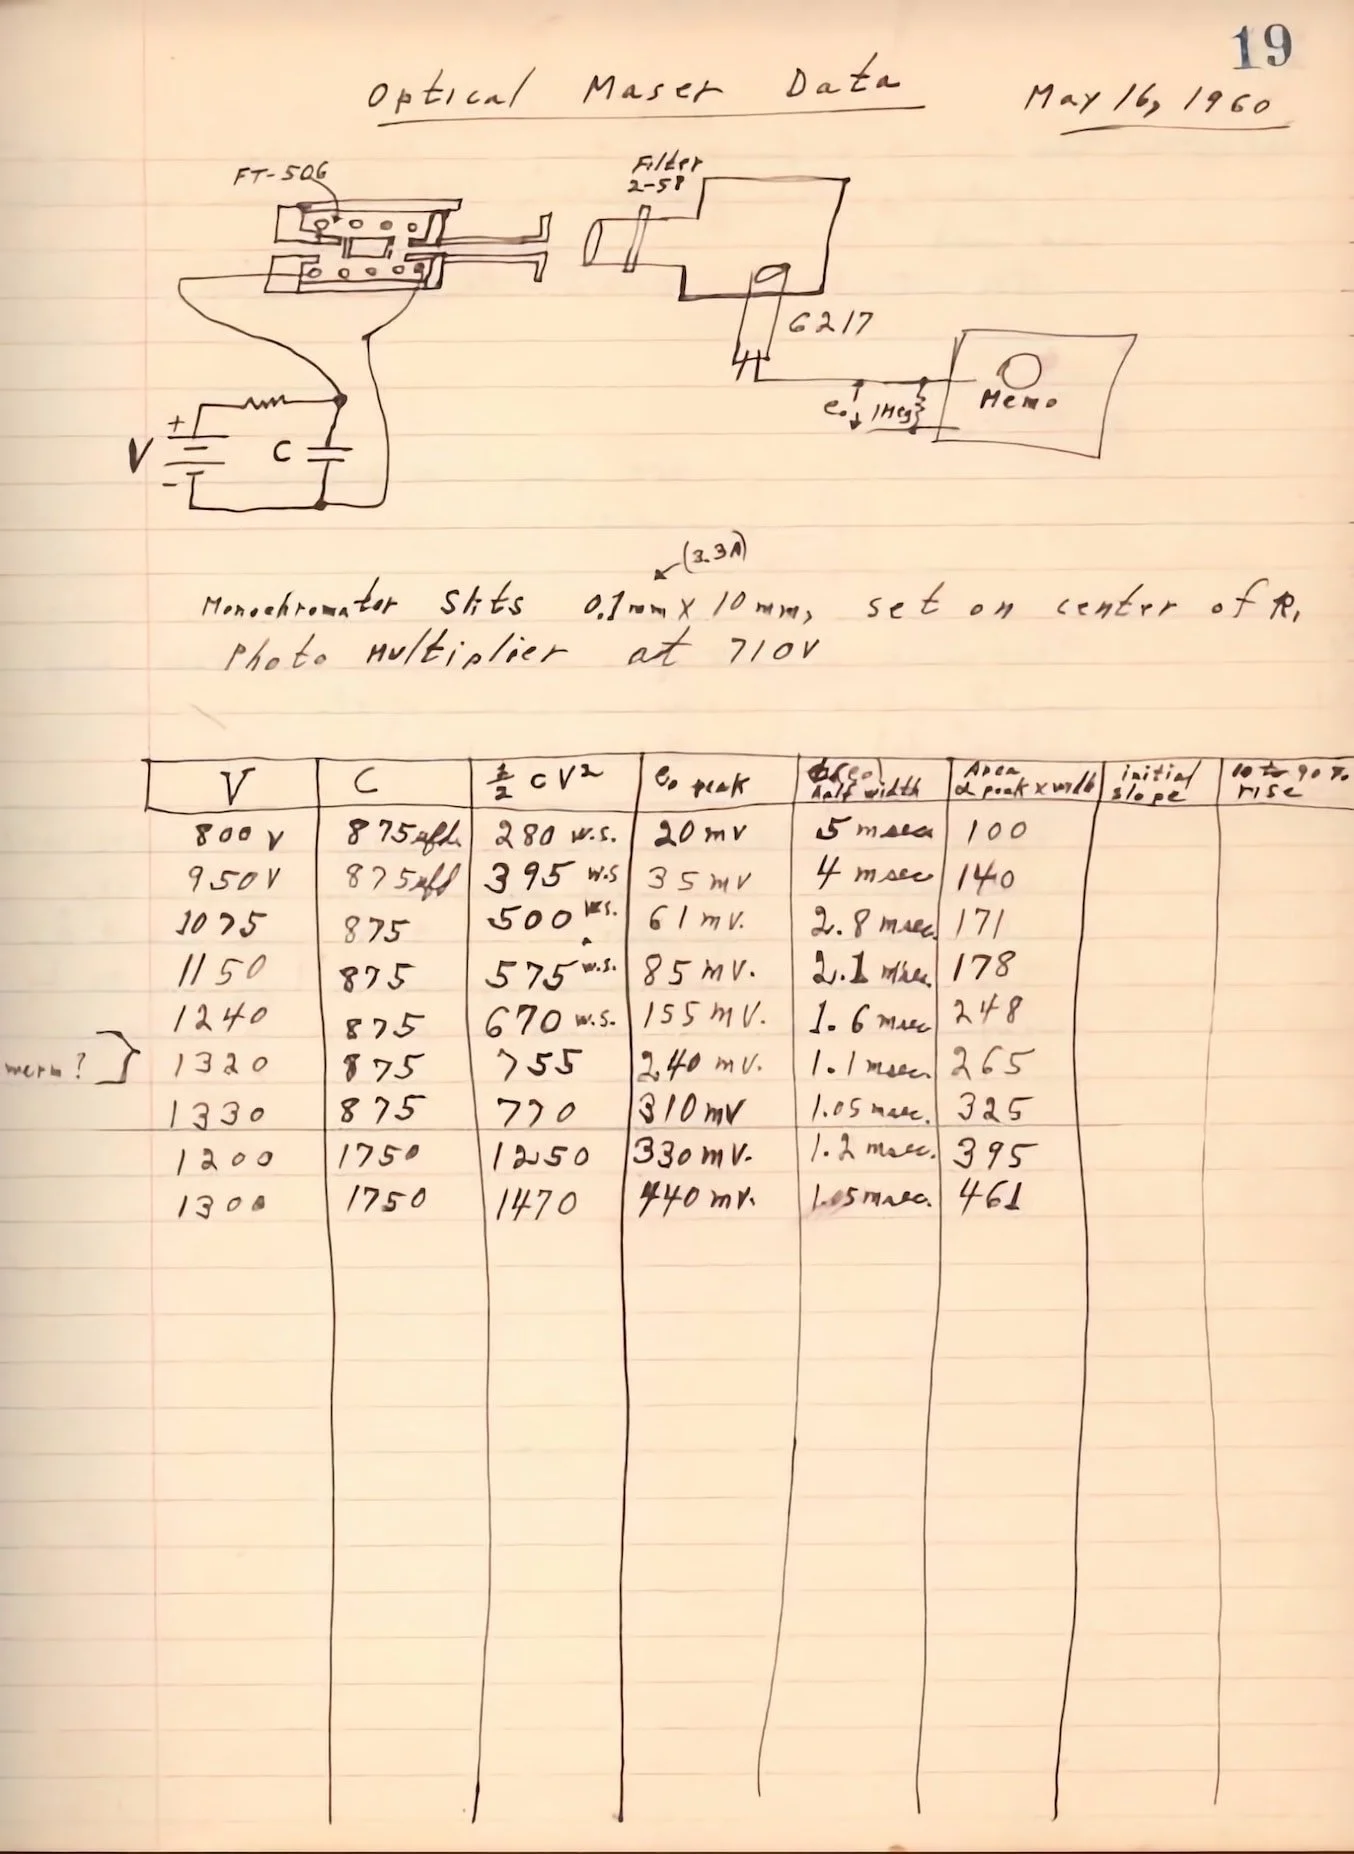 19
Optical Maser Data May 16, 1960
FT-506
Filter
2-58
6217
+
V
-
C
e₀
1Meg
Memo
(3.3A)
Monochromator Slits 0.1mm X 10mm, set on center of R₁
Photo Multiplier at 710V
V C ½ CV² e₀ peak half width Area α peak x width initial slope 10 to 90% rise
800 V 875 μfd 280 w.s. 20 mv 5 msec 100
950V 875 μfd 395 w.s 35 mv 4 msec 140
1075 875 500 w.s. 61 mv. 2.8 msec. 171
1150 875 575 w.s. 85 mv. 2.1 msec. 178
1240 875 670 w.s. 155 mV. 1.6 msec 248
1320 875 755 240 mv. 1.1 msec. 265
1330 875 770 310 mV 1.05 msec. 325
1200 1750 1250 330 mV. 1.2 msec. 395
1300 1750 1470 440 mV. 1.05 msec. 461